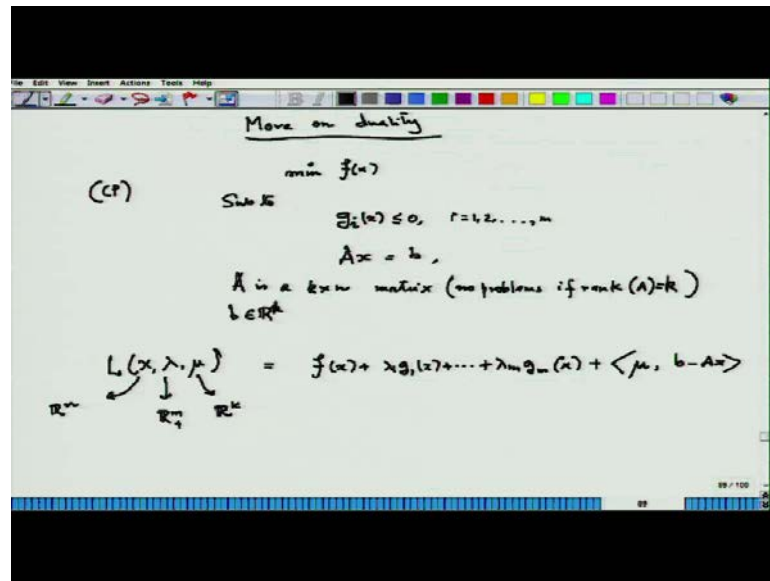 File Edit View Insert Actions Tools Help
More on duality
min f(x)
(CP)
Sub to
g_i(x) ≤ 0, i=1,2,...,m
Ax = b,
A is a k×n matrix (no problems if rank(A)=k)
b ∈ ℝ^k
L(x, λ, μ) = f(x) + λ₁g₁(x) + ··· + λ_m g_m(x) + ⟨μ, b-Ax⟩
ℝ^n ℝ^m_+ ℝ^k
89 / 100
89